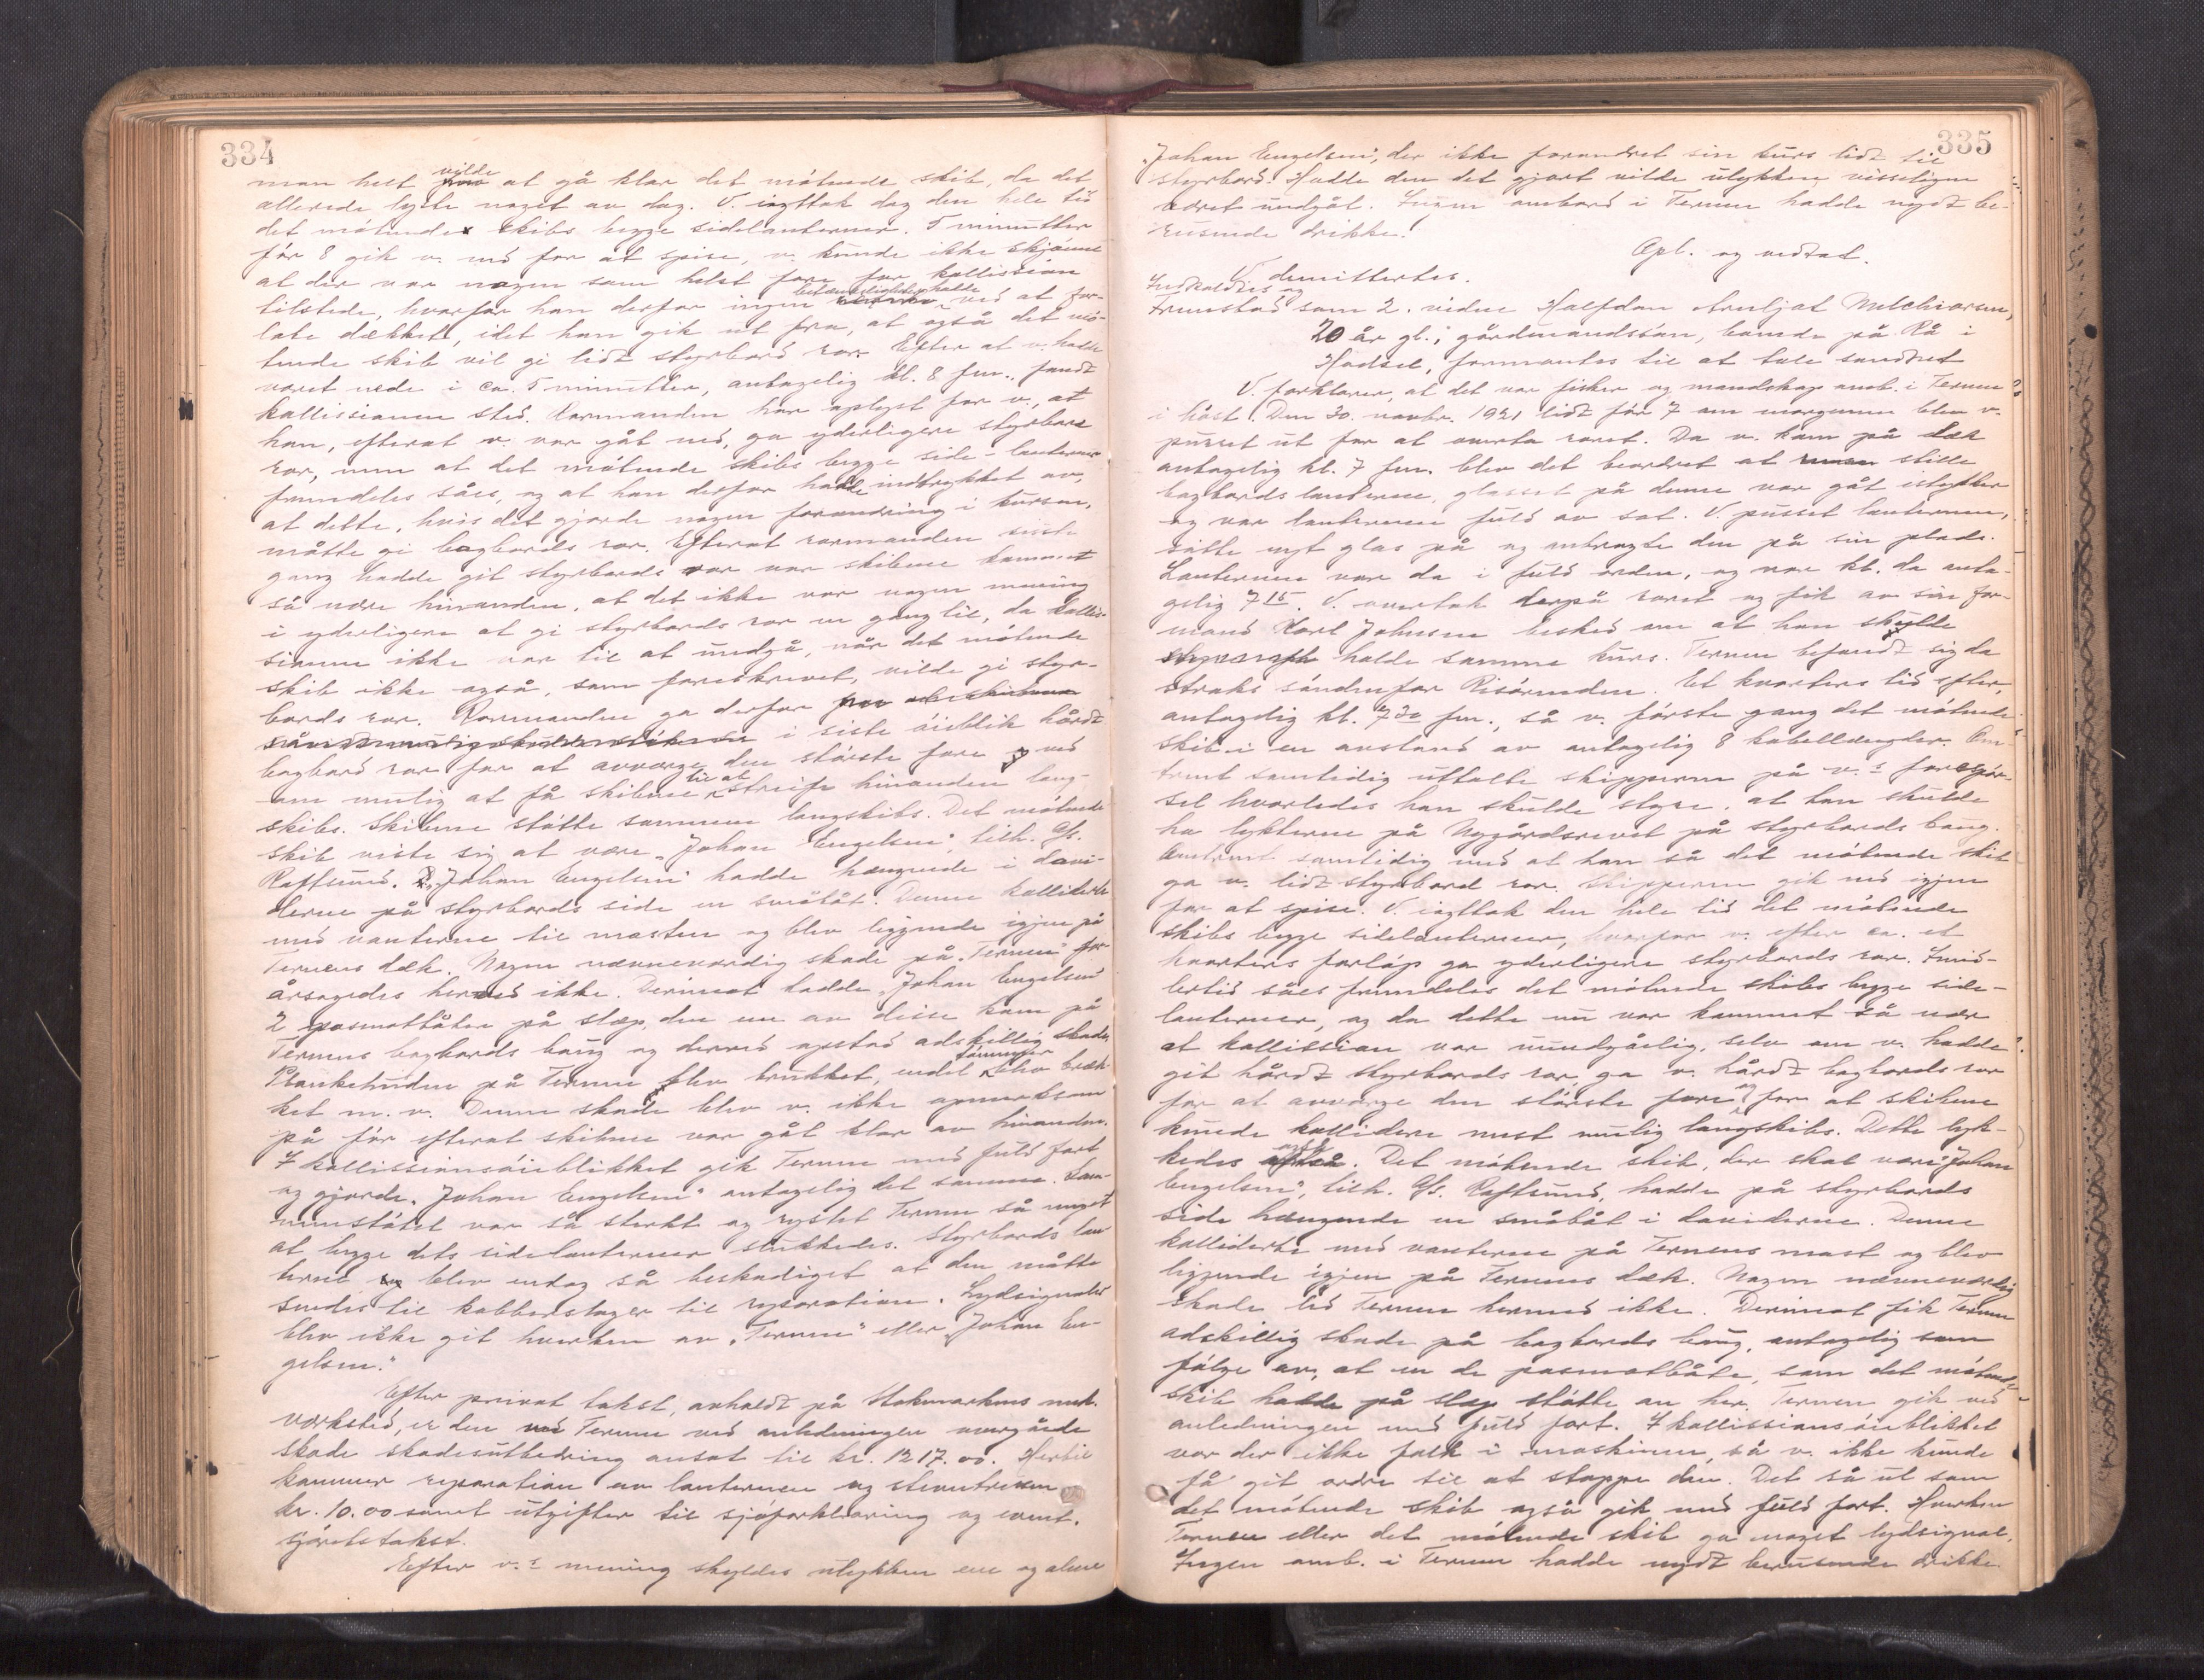 334
man helt vilde at gå klar det møtende skib, da det
allerede lyste noget av dag. V. iagttok dog den hele tid
det møtende skibs begge sidelanterner. 5 minutter
før 8 gik v. ned for at spise, v. kunde ikke skjønne
at der var nogen som helst fare for kollission
tilstede, hvorfor han derfor ingen betænkeligheter hadde ved at for-
late dækket, idet han gik ut fra, at også det mø-
tende skib vil gi lidt styrbord ror. Efter at v. hadde
været nede i ca. 5 minutter, antagelig kl. 8 fm., fandt
kollissionen sted. Rormanden har oplyst for v., at
han, efterat v. var gåt ned, ga yderligere styrbord
ror, men at det møtende skibs begge side-lanterner
fremdeles såes, og at han derfor hadde indtrykket av,
at dette, hvis det gjorde nogen forandring i kursen,
måtte gi bagbords ror. Efterat rormanden siste
gang hadde git styrbords ror var skibene kommet
så nære hinanden, at det ikke var nogen mening
i yderligere at gi styrbords ror en gang til, da kollis-
sionen ikke var til at undgå, når det møtende
skib ikke også, som foreskrevet, vilde gi styr-
bords ror. Rormanden ga derfor
i siste øieblik hårdt
bagbord ror for at avværge den største fare og ved
om mulig at få skibene til at streife hinanden lang-
skibs. Skibene støtte sammen langskibs. Det møtende
skib viste sig at være "Johan Engelsen", tilh. A/S.
Raftsund. "Johan Engelsen" hadde hængende i davi-
derne på styrbords side en småbåt. Denne kolliderte
med vanterne til masten og blev liggende igjen på
Ternens dæk. Nogen nævneværdig skade på "Ternen" for-
årsagedes herved ikke. Derimot hadde "Johan Engelsen"
2 posmotbåter på slæp, den ene av disse kom på
Ternens bagbords boug og derved opstod adskillig skade.
Plankehuden på Ternen blev trukket, endel tømmer blev bræk-
ket m. v. Denne skade blev v. ikke opmerksom
på før efterat skibene var gåt klar av hinanden.
I kollissionsøieblikket gik Ternen med fuld fart
og gjorde "Johan Engelsen" antagelig det samme. Sam-
menstøtet var så sterkt og rystet Ternen så meget
at begge dets sidelanterner slukkedes. Styrbords lan-
terne blev endog så beskadiget at den måtte
sendes til kobberslager til reparation. Lydsignaler
blev ikke git hverken av "Ternen" eller "Johan En-
gelsen."
Efter privat takst, avholdt på Stokmarknes mek.
verksted, er den Ternen ved anledningen overgåede
skade skadesutbedring ansat til kr. 1217.00. Hertil
kommer reparation av lanternen og
kr. 10.00 samt utgifter til sjøforklaring og event.
sjøretstakst.
Efter v.s mening skyldes ulykken ene og alene
335
"Johan Engelsen", der ikke forandret sin kurs lidt til
styrbord. Hadde den det gjort vilde ulykken visseligen
været undgåt. Ingen ombord i Ternen hadde nydt be-
rusende drikke.
Opl. og vedtat.
V. demittertes.
Indkaldtes og
Fremstod som 2. vidne Halfdan Arnljot Melchiorsen,
20 år gl., gårdmandssøn, boende på Rå i
Hadsel, formantes til at tale sandhet
V. forklarer, at det var fisker og mandskap omb. i Ternen
i høst. Den 30. novbr. 1921 lidt før 7 om morgenen blev v.
purret ut for at overta roret. Da v. kom på dæk
antagelig kl. 7 fm. blev det beordret at stille
bagbords lanterne, glasset på denne var gåt istykker
og var lanternen fuld av sot. V. pusset lanternen,
satte nyt glas på og anbragte den på sin plads.
Lanternen var da i fuld orden, og var kl. da anta-
gelig 7 15. V. overtok derpå roret og fik av sin for-
mand Karl Johnsen besked om at han skulde
holde samme kurs. Ternen befandt sig da
straks søndenfor Risørenden. Et kvarters tid efter,
antagelig kl. 7 30 fm., så v. første gang det møtende
skib i en avstand av antagelig 8 kabellængder. Om-
trent samtidig uttalte skipperen på v.s forespør-
sel hvorledes han skulde styre, at han skulde
ha lykterne på Nygårdsrevet på styrbords boug.
Omtrent samtidig med at han så det møtende skib
ga v. lidt styrbord ror. Skipperen gik ned igjen
for at spise. V. iagttok den hele tid det møtende
skibs begge sidelanterner, hvorfor v. efter ca. et
kvarters forløp ga yderligere styrbords ror. Imid-
lertid såes fremdeles det møtende skibs begge side-
lanterner, og da dette nu var kommet så nær
at kollission var uundgåelig, selv om v. hadde
git hårdt styrbords ror, ga v. hårdt bagbords ror
for at avværge den største fare og for at skibene
kunde kollidere mest mulig langskibs. Dette lyk-
kedes også. Det møtende skib, der skal være "Johan
Engelsen", tilh. A/S. Raftsund, hadde på styrbords
side hængende en småbåt i daviderne. Denne
kolliderte med vanterne på Ternens mast og blev
liggende igjen på Ternens dæk. Nogen nævneværdig
skade led Ternen hermed ikke. Derimot fik Ternen
adskillig skade på bagbords boug, antagelig som
følge av, at en de posmotbåte, som det møtende
skib hadde på slæp støtte an her. Ternen gik ved
anledningen med fuld fart. I kollissionsøieblikket
var der ikke folk i maskinen, så v. ikke kunde
få git ordre til at stoppe den. Det så ut som
det møtende skib også gik med fuld fart. Hverken
Ternen eller det møtende skib ga noget lydsignal.
Ingen omb. i Ternen hadde nydt berusende drikke